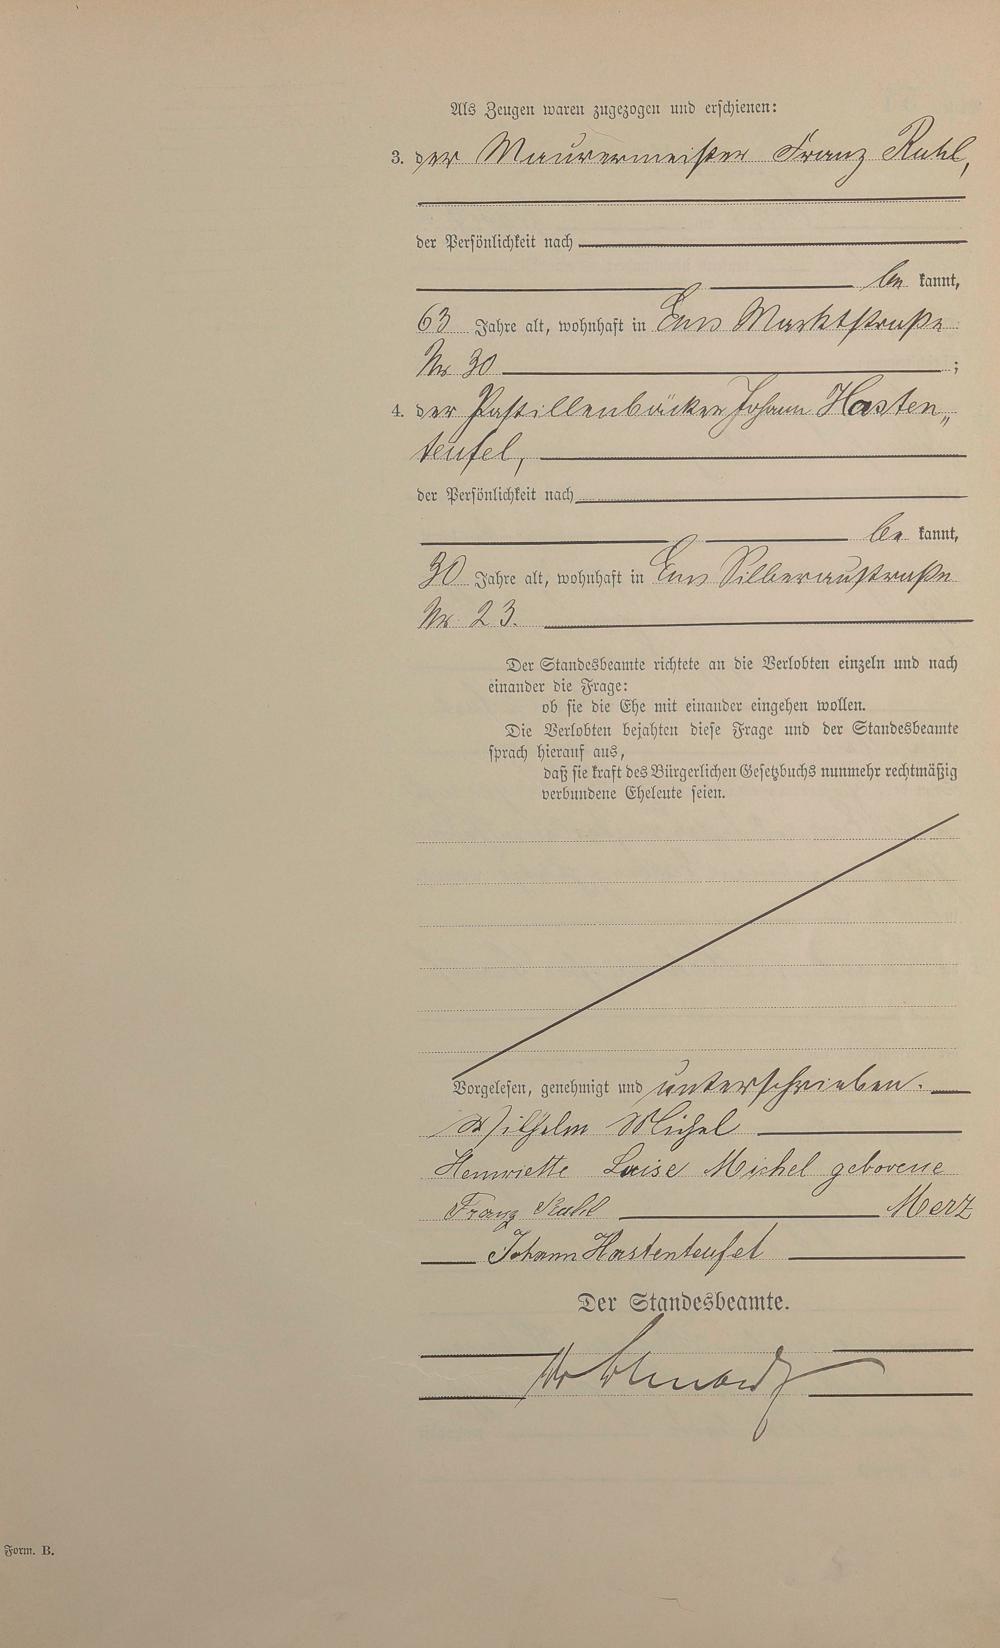 Als Zeugen waren zugezogen und erschienen:
3. der Maurermeister Franz Ruhl,
der Persönlichkeit nach
be kannt,
63 Jahre alt, wohnhaft in Ems Marktstraße
Nr 30 ;
4. der Pastillenbäcker Johann Hasten„
teufel,
der Persönlichkeit nach
be kannt,
30 Jahre alt, wohnhaft in Ems Silberaustraße
Nr. 23.
Der Standesbeamte richtete an die Verlobten einzeln und nach
einander die Frage:
ob sie die Ehe mit einander eingehen wollen.
Die Verlobten bejahten diese Frage und der Standesbeamte
sprach hierauf aus,
daß sie kraft des Bürgerlichen Gesetzbuchs nunmehr rechtmäßig
verbundene Eheleute seien.
Vorgelesen, genehmigt und unterschrieben.
Wilhelm Michel
Henriette Luise Michel geborene
Franz Ruhl Merz
Johann Hastenteufel
Der Standesbeamte.
Form. B.